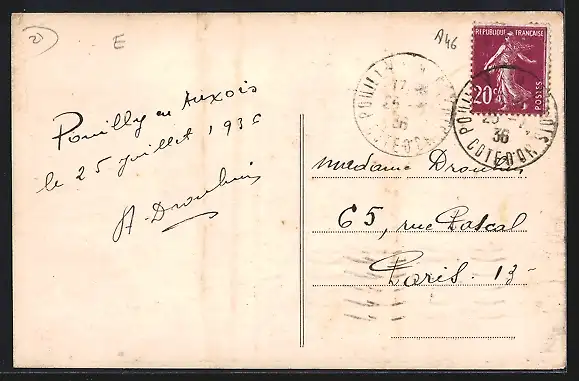 2)
E
A46
REPUBLIQUE FRANÇAISE
20c
POSTES
36
COTE-D'OR
36
COTE-D'OR
Pouilly en Auxois
le 25 juillet 1936
Madame Drouhin
65, rue Pascal
Paris - 13-